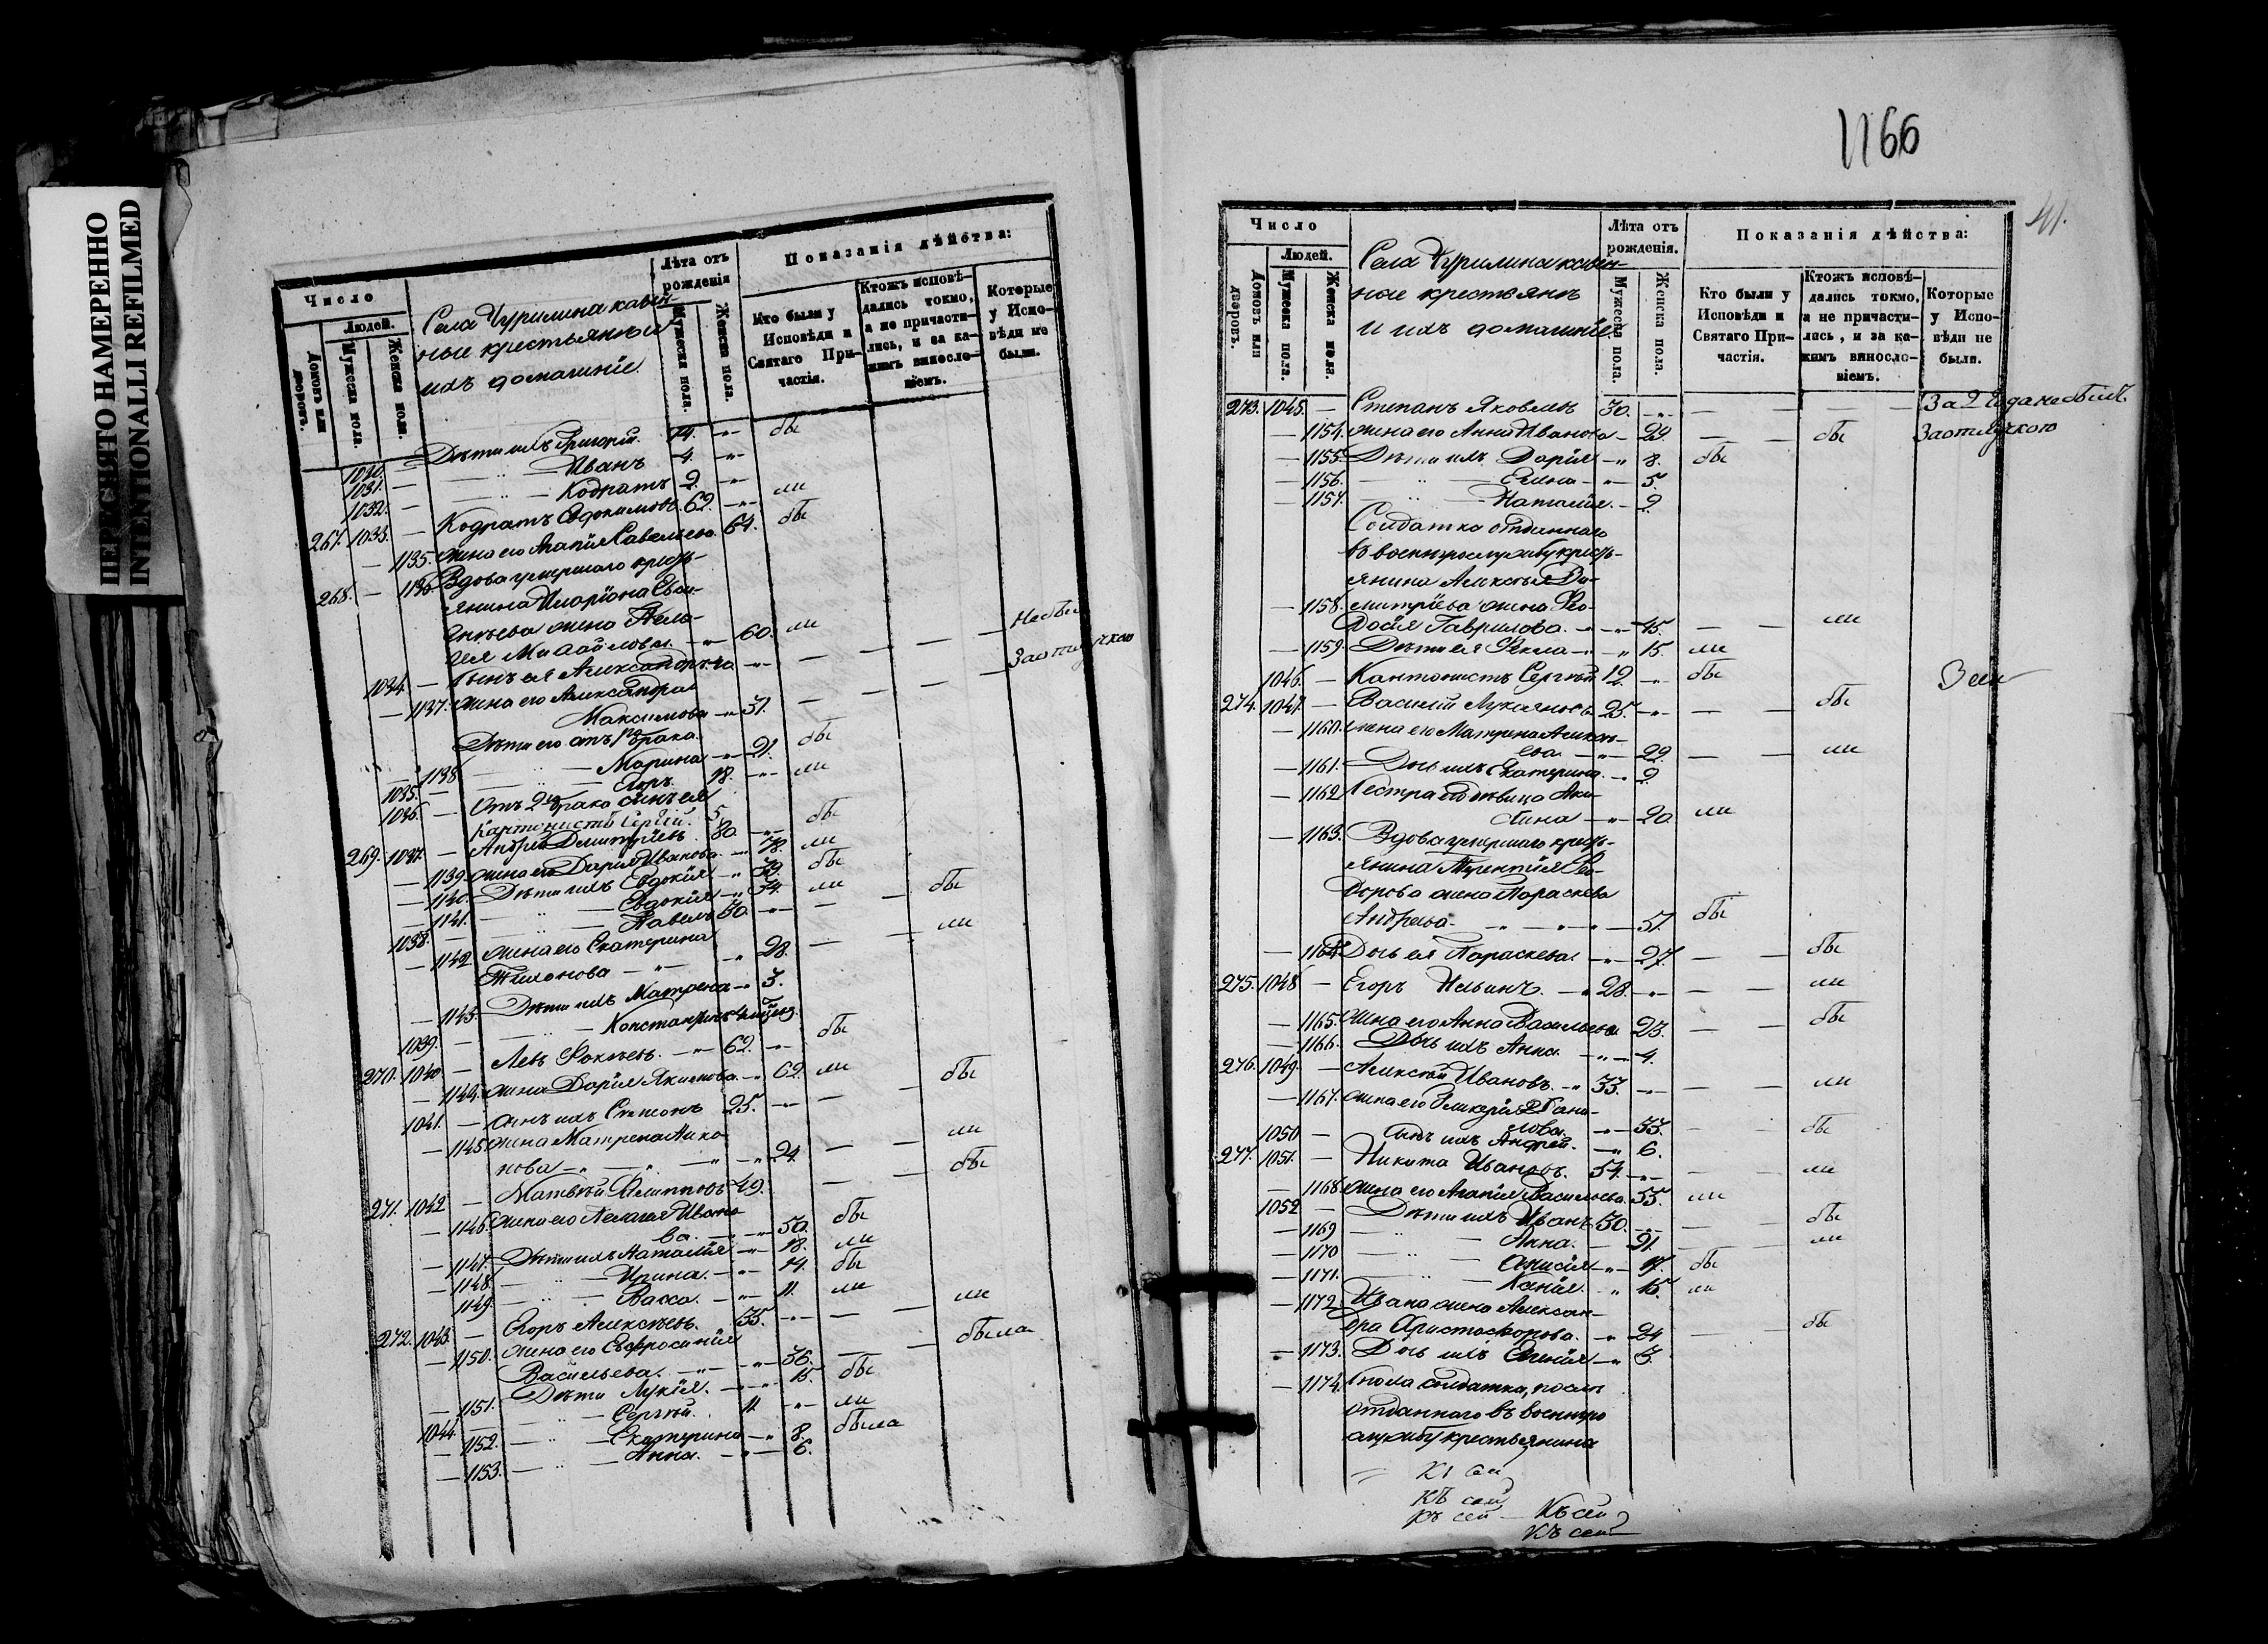 ПЕРЕСНЯТО НАМЕРЕННО
INTENTIONALLI REFILMED
Число
Людей.
Домовъ или дворовъ.
Мужеска пола.
Женска пола.
Села Чурилина казен-
ные крестьянъ и
ихъ домашніе
Лѣта отъ рожденія
Мужеска пола.
Женска пола.
Показанія дѣйства:
Кто были у Исповѣди и Святаго Причастія.
Ктожъ исповѣдались токмо, а не причастились, и за какимъ винословіемъ.
Которые у Исповѣди не были.
1030. — Дѣти ихъ Григорій. 14. -"- бы
1031. — — " — Иванъ 4. -"-
1032. — — " — Кодратъ 2. -"-
267. 1033. — Кодратъ Евдокимовъ. 62. -"- ли
— 1135. жена его Агапія Савельева. 64. бы
268. — 1136. Вдова умершаго крест-
янина Иларіона Евси-
гнѣева жена Пела-
гея Михайлова -"- 60. ли
1034. — Сынъ ея Александръ -"- — — — Не бы
— 1137. жена его Александра За отлучкою
Максимова -"- 31. —
Дѣти его отъ 1го брака.
— 1138 — " — Марина -"- 21. бы
1035. — — " — Егоръ. 18. -"- ли
1036. — Отъ 2го брака сынъ ея
Кантонистъ Сергѣй. 5. бы
269. 1037. — Андрей Димитріевъ. 80. -"- ли
— 1139. жена его Дарія Иванова. -"- 78. бы
— 1140. Дѣти ихъ Евдокія -"- 39. ли
— 1141. — " — Евдокія -"- 34.
1038. — — " — Павелъ 30. -"- — — бы
— 1142 жена его Екатерина
Тихонова -"- 28. — — ли
— 1143. Дѣти ихъ Матрена -"- 3.
1039. — — " — Константинъ
270. 1040 — Левъ Фокѣевъ. -"- 62. -"- бы
— 1144. жена Дарія Якимова. -"- 62. ли
1041. — сынъ ихъ Симеонъ 25. -"- — — бы
— 1145. жена Матрена Ники-
нова -"- 24. — — ли
271. 1042 — Матвѣй Филипповъ 49. — — бы
— 1146. жена его Пелагея Ивано-
ва. -"- 50. бы
— 1147. Дѣти ихъ Наталія -"- 18. ли
— 1148. — " — Ирина. -"- 14. бы
1149. — " — Васса. -"- 11. ли
272. 1043. — Егоръ Алексѣевъ. 35. -"- — — ли
— 1150. жена его Евфросинія
Васильева. -"- 36. — — была
— 1151. Дѣти Лукія. -"- 15. бы
1044. — — " — Сергѣй. 11. -"- ли
— 1152. — " — Екатерина -"- 8. была
— 1153. — " — Анна. -"- 6.
1166
41.
Число
Людей.
Домовъ или дворовъ.
Мужеска пола.
Женска пола.
Села Чурилина казен-
ные крестьянъ
и ихъ домашніе.
Лѣта отъ рожденія.
Мужеска пола.
Женска пола.
Показанія дѣйства:
Кто были у Исповѣди и Святаго Причастія.
Ктожъ исповѣдались токмо, а не причастились, и за какимъ винословіемъ.
Которые у Исповѣди не были.
273. 1045. — Степанъ Яковлевъ 30. -"- — — — За 2 года не былъ.
— 1154. жена его Анна Иванова — 29. — — бы За отлучкою
— 1155. Дѣти ихъ Дарія -"- 8. бы
— 1156. — " — Елена -"- 5.
— 1157. — " — Наталія. - 2
Солдатка отданнаго
въ военную службу крест-
янина Алексѣя Ди-
— 1158. митріева жена Ѳео-
досія Гаврилова. -"- 45. — — ли
— 1159. Дѣти ея Ѳекла -"- 15. ли
1046. — Кантонистъ Сергѣй 12. -"- бы
274. 1047. — Василій Лукьяновъ 25. -"- — — бы
— 1160. жена его Матрена Алексѣ-
ева. -"- 22. — — ли
— 1161. Дочь ихъ Екатерина. -"- 2
— 1162 Сестра его дѣвица Аки-
лина -"- 20. ли
— 1163. Вдова умершаго крест-
янина Терентія Ѳео-
дорова жена Параскева
Андреева. -"- 57. бы
— 1164. Дочь ея Параскева. -"- 27. — — бы
275. 1048. — Егоръ Ильинъ. -"- 28. -"- — — ли
— 1165. жена его Анна Васильева 23. — — бы
— 1166. Дочь ихъ Анна -"- 4.
276. 1049. — Алексѣй Ивановъ. -"- 33. -"- — — ли
— 1167. жена его Гликерія Дани-
лова. -"- 33. — — бы
1050 — сынъ ихъ Андрей. -"- 6.
277. 1051. — Никита Ивановъ. 54. -"- — — ли
— 1168 жена его Агапія Васильева. 55. ли
1052 — Дѣти ихъ Иванъ 30. -"- — — бы
— 1169 — " — Анна. -"- 21. — — ли
— 1170 — " — Анисія -"- 17. бы
— 1171. — " — Ксенія. -"- 15. ли
— 1172. Ивана жена Алексан-
дра Христофорова. -"- 24 — — бы
— 1173. Дочь ихъ Евгенія -"- 3.
— 1174. Сноха солдатка, послѣ
отданнаго въ военную
службу крестьянина
Къ сей
Къ сей
Къ сей — Къ сей
Къ сей